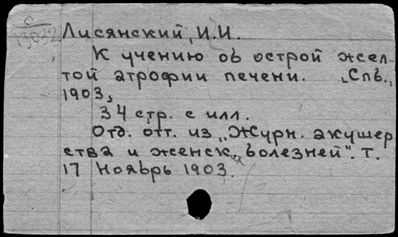 С
13022
Лисянский, И.И.
К учению об острой жел-
той атрофии печени. „Спб.,
1903,
34 стр. с илл.
Отд. отт. из „Журн. акушер
ства и женск„ болезней". Т.
17 Ноябрь 1903.